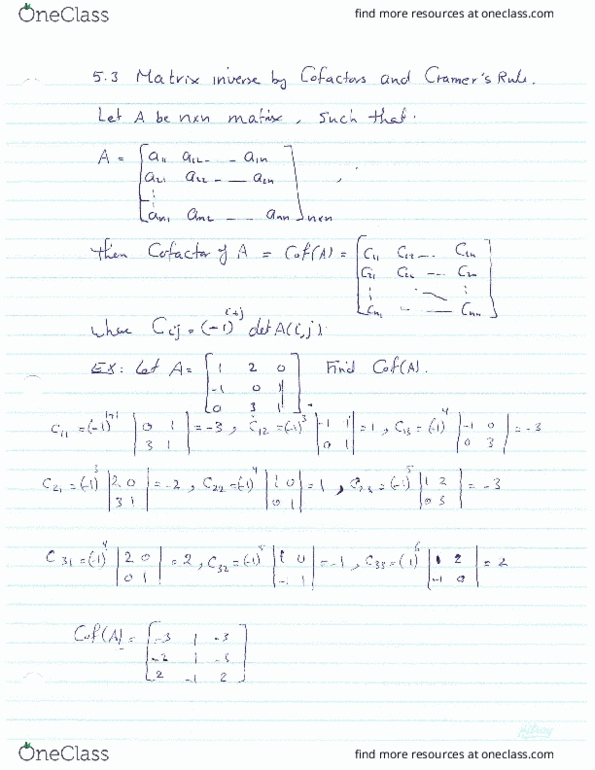 OneClass find more resources at oneclass.com
5.3 Matrix inverse by Cofactors and Cramer's Rule.
Let A be nxn matrix, such that.
A = [a11 a12 - - a1n
a21 a22 - - a2n
⋮
an1 an2 - - ann]nxn
then Cofactor of A = Cof(A) = [C11 C12 -.. C1n
C21 C22 --- C2n
⋮ ⋮
Cn1 - - Cnn]
where Cij = (-1)^i+j det A(i,j)
EX: Let A = [1 2 0 Find Cof(A).
-1 0 1
0 3 1].
C11 = (-1)^1+1 |0 1 = -3, C12 = (-1)^3 |-1 1| = 1, C13 = (-1)^4 |-1 0| = -3
3 1| 0 1 0 3
C21 = (-1)^3 |2 0| = -2, C22 = (-1)^4 |1 0| = 1, C23 = (-1)^5 |1 2| = -3
3 1 0 1 0 3
C31 = (-1)^4 |2 0| = 2, C32 = (-1)^5 |1 0| = -1, C33 = (-1)^6 |1 2| = 2
0 1 -1 1 -1 0
Cof(A) = [-3 1 -3
-2 1 -3
2 -1 2]
OneClass find more resources at oneclass.com